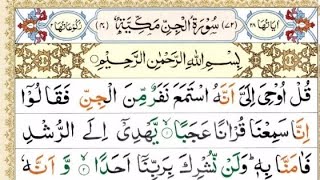 اٰیَاتُهَا ۲۸ (۷۲) سُوْرَةُ الْجِنِّ مَكِّیَّةٌ (۴۰) رُكُوْعَاتُهَا ۲
بِسْمِ اللّٰهِ الرَّحْمٰنِ الرَّحِیْمِ
قُلْ اُوْحِیَ اِلَیَّ اَنَّهُ اسْتَمَعَ نَفَرٌ مِّنَ الْجِنِّ فَقَالُوْۤا
اِنَّا سَمِعْنَا قُرْاٰنًا عَجَبًا ۱ یَّهْدِیْۤ اِلَی الرُّشْدِ
فَاٰمَنَّا بِهٖ وَلَنْ نُّشْرِكَ بِرَبِّنَاۤ اَحَدًا ۲ وَّ اَنَّهٗ